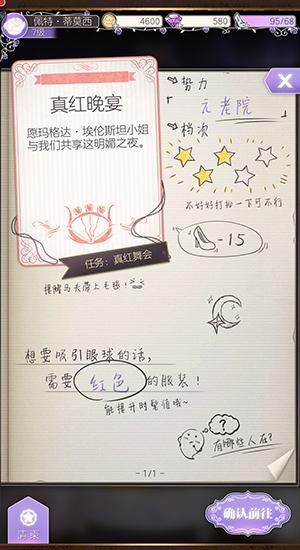 佩特·蒂莫西
7级
4600
580
95/68
真红晚宴
愿玛格达·埃伦斯坦小姐
与我们共享这明媚之夜。
任务：真红舞会
势力
元老院
档次
不好好打扮一下可不行
-15
提醒马夫带上毛毯！
想要吸引眼球的话，
需要 红色 的服装！
能提升时髦值哦~
?
有哪些人在？
- 1/1 -
请柬
确认前往